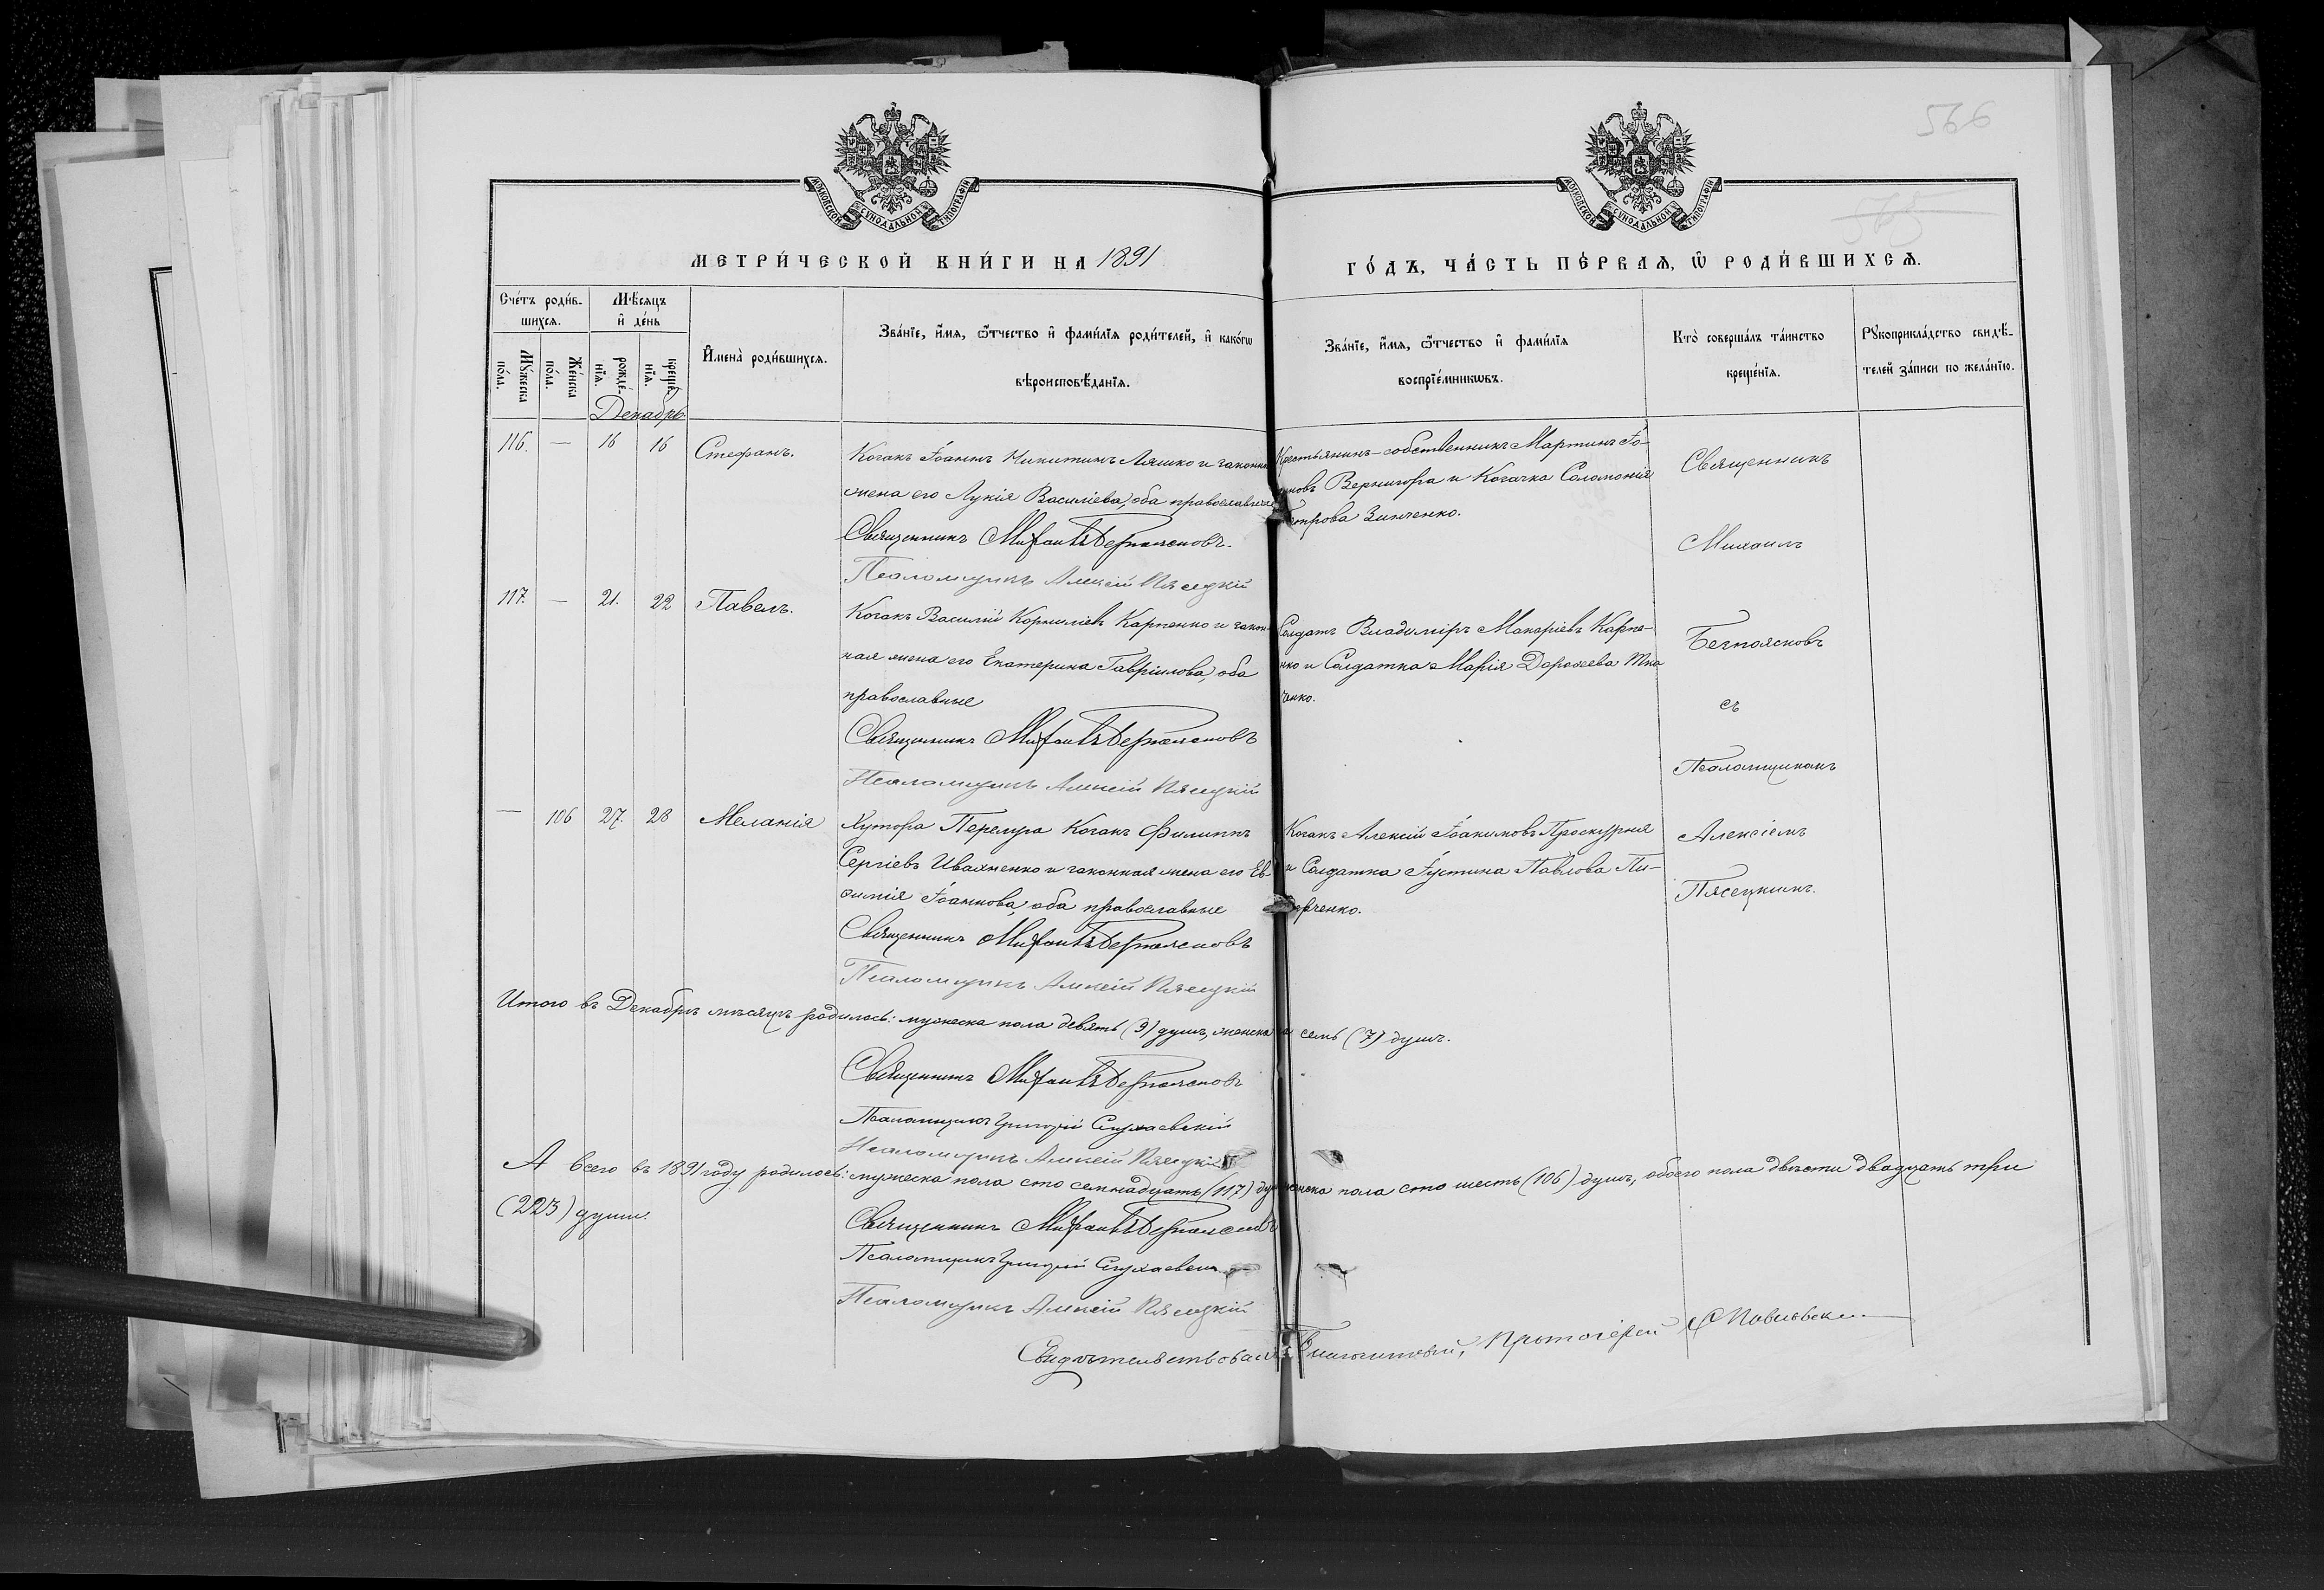 566
565
МОСКОВСКОЙ СѴНОДАЛЬНОЙ ТИПОГРАФІИ
МОСКОВСКОЙ СѴНОДАЛЬНОЙ ТИПОГРАФІИ
МЕТРИ́ЧЕСКОЙ КНИ́ГИ НА 1891
ГО́ДЪ, ЧА́СТЬ ПЕ́РВАЯ, Ѡ РОДИ́ВШИХСѦ.
Сче́тъ роди́в-
шихся.
Мꙋ́жеска по́ла.
Же́нска по́ла.
Мѣ́сяцъ
и҆ де́нь
рожде́-нїѧ.
креще́-нїѧ.
И҆мена̀ роди́вшихся.
Зва́нїе, и҆́мѧ, ѻ҆́тчество и҆ фами́лїѧ роди́телей, и҆ како́гѡ
вѣроисповѣ́данїѧ.
Зва́нїе, и҆́мѧ, ѻ҆́тчество и҆ фами́лїѧ
воспрїе́мникѡвъ.
Кто̀ соверша́лъ та́инство
креще́нїѧ.
Рꙋкоприкла́дство свидѣ́-
телей за́писи по жела́нїю.
Декабрь
116. — 16 16 Стефанъ.
Козакъ Іоаннъ Никитинъ Ляшко и законная
жена его Лукія Василіева, оба православные
Священникъ Михаилъ Безпоясновъ.
Псаломщикъ Алексій Пясецкій
Крестьянинъ-собственникъ Мартинъ Іо-
анновъ Вернигора и Козачка Соломонія
Петрова Зинченко.
117. — 21. 22 Павелъ.
Козакъ Василій Корниліевъ Карпенко и закон-
ная жена его Екатерина Гавріилова, оба
православные
Священникъ Михаилъ Безпоясновъ
Псаломщикъ Алексій Пясецкій
Солдатъ Владиміръ Макаріевъ Карпе-
нко и Солдатка Марія Дорофеева Тка
ченко.
— 106 27. 28 Меланія
Хутора Перещра Козакъ Филиппъ
Сергіевъ Ивахненко и законная жена его Ев-
ѳимія Іоаннова, оба православные
Священникъ Михаилъ Безпоясновъ
Псаломщикъ Алексій Пясецкій
Козакъ Алексій Іоакимовъ Проскурня
и Солдатка Іустина Павлова Пи-
Священникъ
Михаилъ
Безпоясновъ
съ
Псаломщикомъ
Алексіемъ
Пясецкимъ.
Итого въ Декабрѣ мѣсяцѣ родилось: мужеска пола девять (9) душъ, женска семь (7) душъ.
Священникъ Михаилъ Безпоясновъ
Псаломщикъ Григорій
Псаломщикъ Алексій Пясецкій
А всего въ 1891 году родилось: мужеска пола сто семнадцать (117) душъ женска пола сто шесть (106) душъ, обоего пола двѣсти двадцать три
(223) души.
Священникъ Михаилъ Безпоясновъ
Псаломщикъ Григорій
Псаломщикъ Алексій Пясецкій
Свидѣтельствовалъ Благочинный, Протоіерей